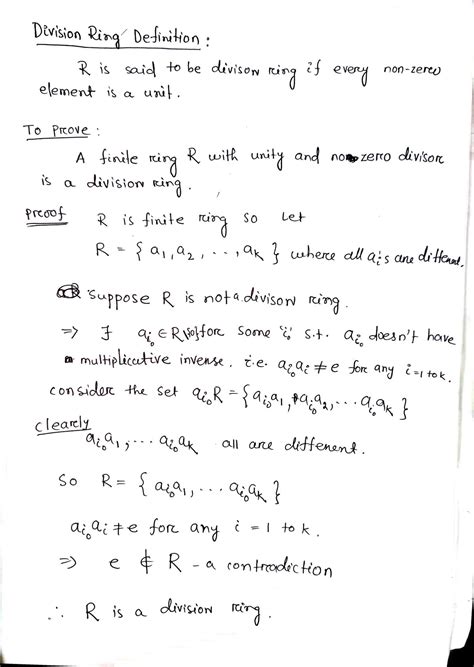 Division Ring Definition :
R is said to be divison ring if every non-zero
element is a unit.
To Prove :
A finite ring R with unity and no zero divisor
is a division ring.
Proof R is finite ring so Let
R = { a₁, a₂, . . , aₖ } where all aᵢ's are different.
suppose R is not a divison ring.
⇒ ∃ aᵢ₀ ∈ R\{0} for some 'i₀' s.t. aᵢ₀ doesn't have
multiplicative inverse. i.e. aᵢ₀aᵢ ≠ e for any i = 1 to k.
consider the set aᵢ₀R = {aᵢ₀a₁, aᵢ₀a₂, . . . aᵢ₀aₖ}
clearly
aᵢ₀a₁, . . . aᵢ₀aₖ all are different.
So R = { aᵢ₀a₁, . . . aᵢ₀aₖ }
aᵢ₀aᵢ ≠ e for any i = 1 to k.
⇒ e ∉ R - a contradiction
∴ R is a division ring.